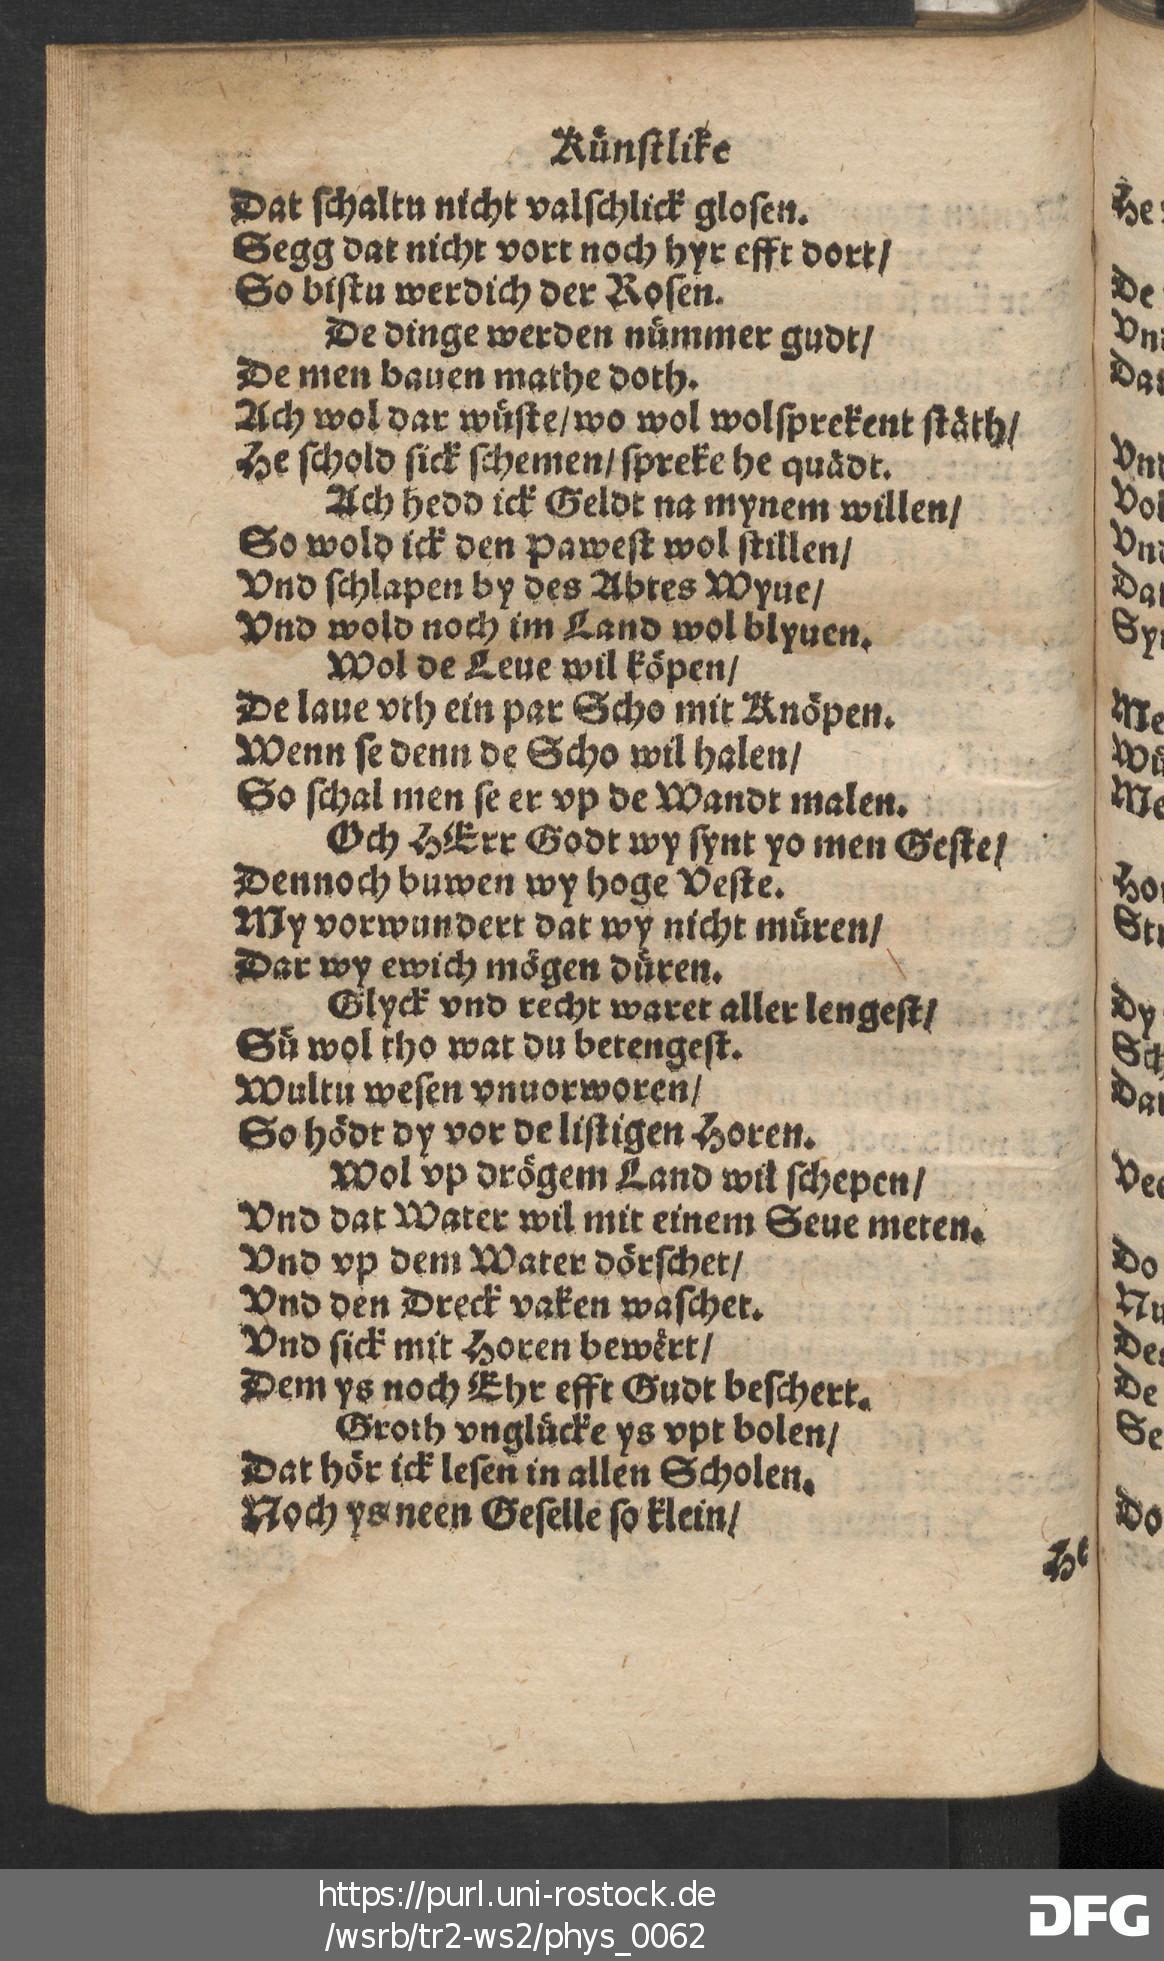 Künstlike
Dat schaltu nicht valschlick glosen.
Segg dat nicht vort noch hyr efft dort/
So bistu werdich der Rosen.
De dinge werden nümmer gudt/
De men bauen mathe doth.
Ach wol dar wüste/wo wol wolsprekent stäth/
He schold sick schemen/spreke he quädt.
Ach hedd ick Geldt na mynem willen/
So wold ick den Pawest wol stillen/
Vnd schlapen by des Abtes Wyue/
Vnd wold noch im Land wol blyuen.
Wol de Leue wil köpen/
De laue vth ein par Scho mit Knöpen.
Wenn se denn de Scho wil halen/
So schal men se er vp de Wandt malen.
Och HErr Godt wy synt yo men Geste/
Dennoch buwen wy hoge Veste.
My vorwundert dat wy nicht müren/
Dar wy ewich mögen düren.
Glyck vnd recht waret aller lengest/
Sü wol tho wat du betengest.
Wultu wesen vnuorworen/
So hödt dy vor de listigen Horen.
Wol vp drögem Land wil schepen/
Vnd dat Water wil mit einem Seue meten.
Vnd vp dem Water dörschet/
Vnd den Dreck vaken waschet.
Vnd sick mit Horen bewert/
Dem ys noch Ehr efft Gudt beschert.
Groth vnglücke ys vpt bolen/
Dat hör ick lesen in allen Scholen.
Noch ys neen Geselle so klein/
He
https://purl.uni-rostock.de
/wsrb/tr2-ws2/phys_0062
DFG